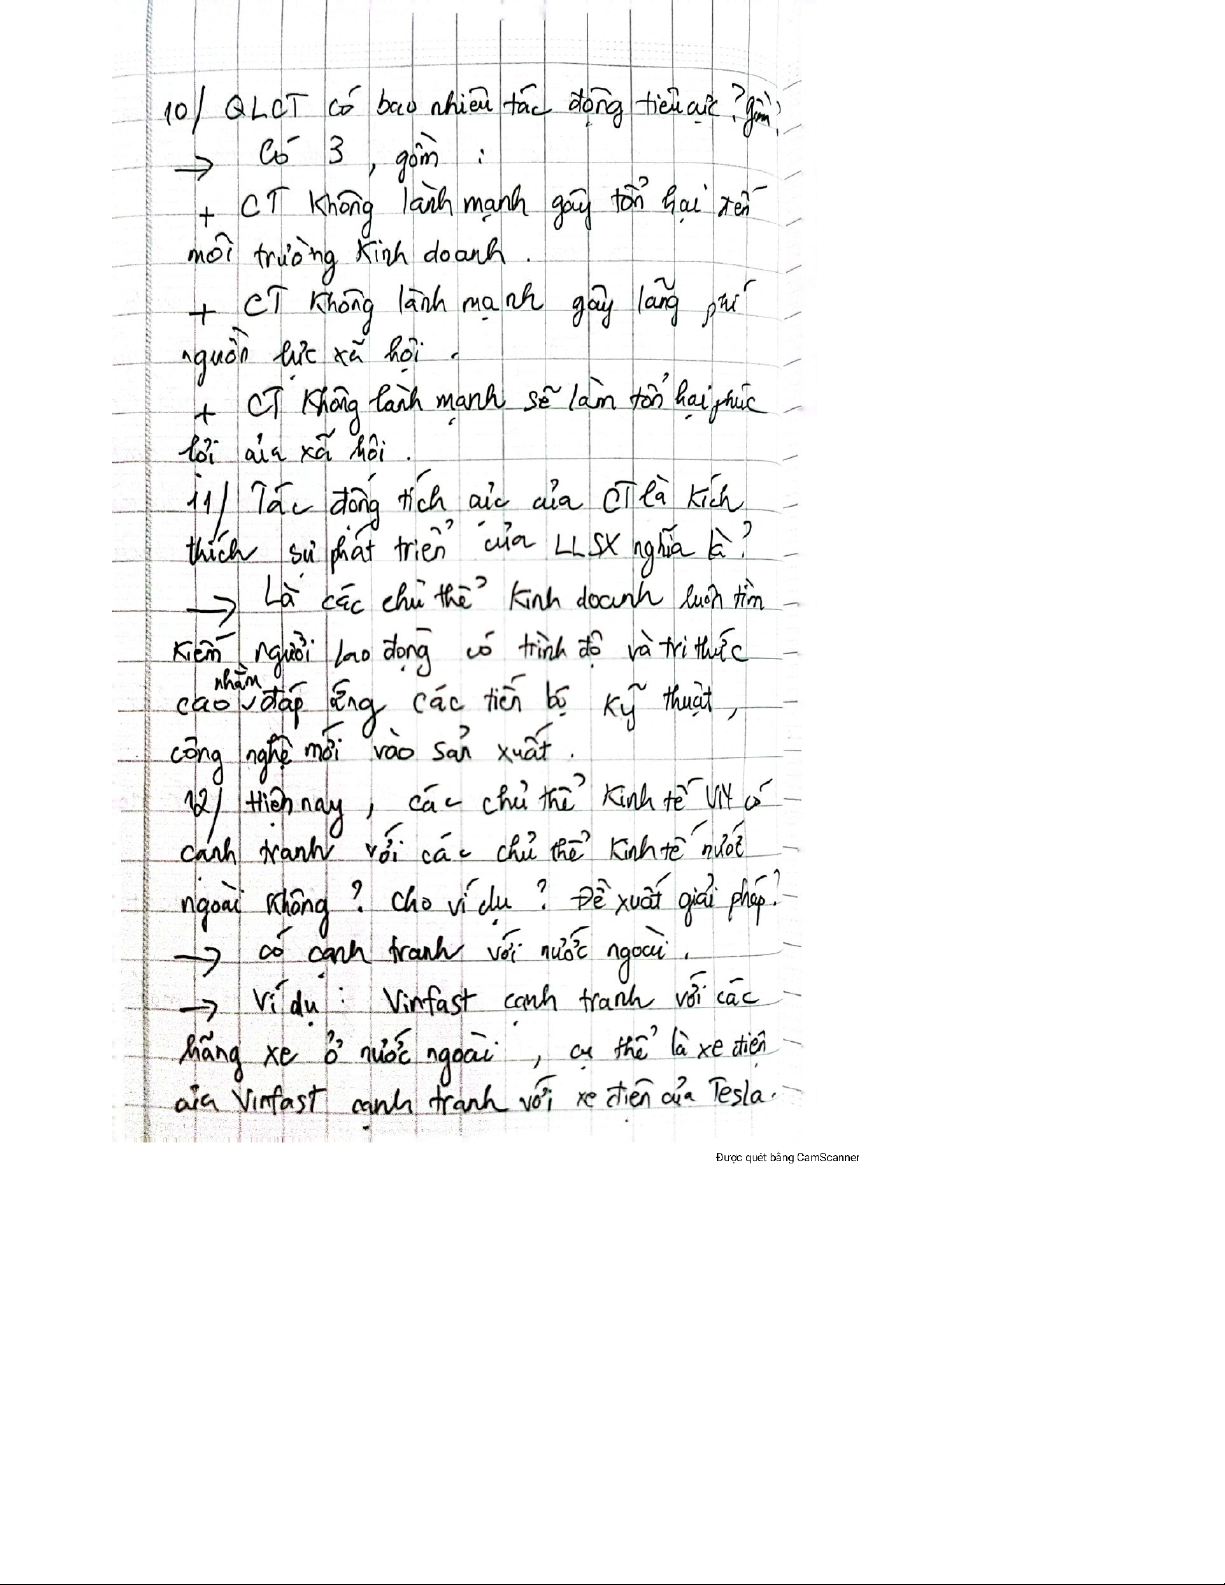 10/ QLCT có bao nhiêu tác động tiêu cực? gồm?
→ Có 3, gồm :
+ CT không lành mạnh gây tổn hại đến
môi trường kinh doanh.
+ CT không lành mạnh gây lãng phí
nguồn lực xã hội.
+ CT không lành mạnh sẽ làm tổn hại phúc
lợi của xã hội.
11/ Tác động tích cực của CT là kích
thích sự phát triển của LLSX nghĩa là?
→ Là các chủ thể kinh doanh luôn tìm
kiếm người lao động có trình độ và tri thức
cao nhằm đáp ứng các tiến bộ kỹ thuật,
công nghệ mới vào sản xuất.
12/ Hiện nay, các chủ thể kinh tế VN có
cạnh tranh với các chủ thể kinh tế nước
ngoài không? Cho ví dụ? Đề xuất giải pháp?
→ có cạnh tranh với nước ngoài.
→ Ví dụ: Vinfast cạnh tranh với các
hãng xe ở nước ngoài, cụ thể là xe điện
của Vinfast cạnh tranh với xe điện của Tesla.
Được quét bằng CamScanner